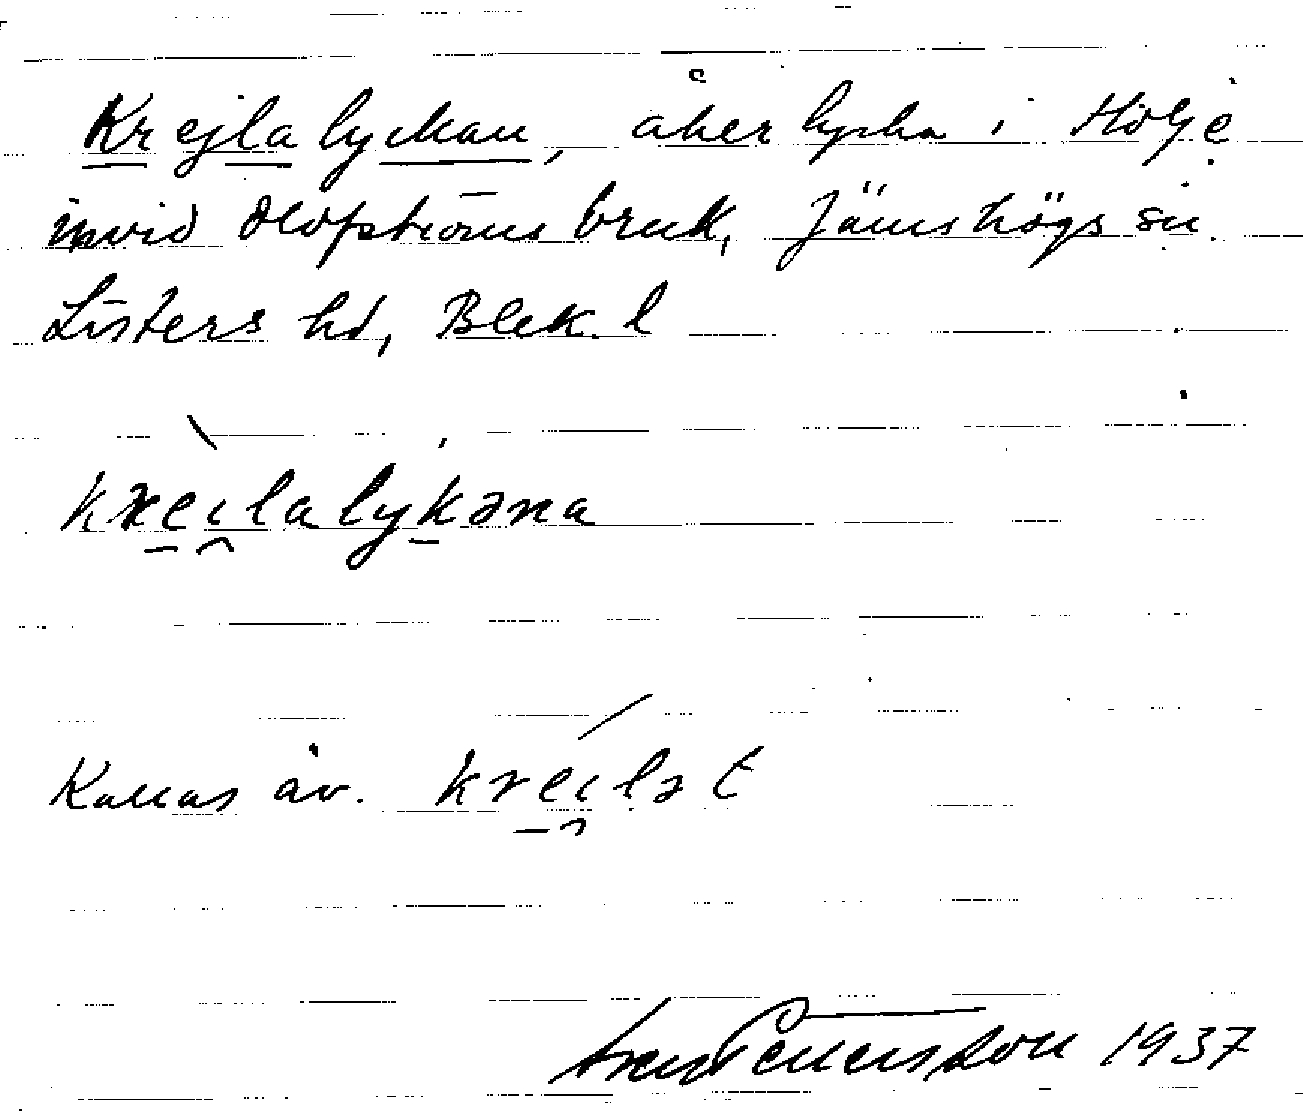 Krejlalyckan, åkerlycka i Hölje
invid Olofströms bruk, Jämshögs sn.
Listers hd, Blek. l
kreilalykəna
Kallas äv. kreilət
Pettersson 1937